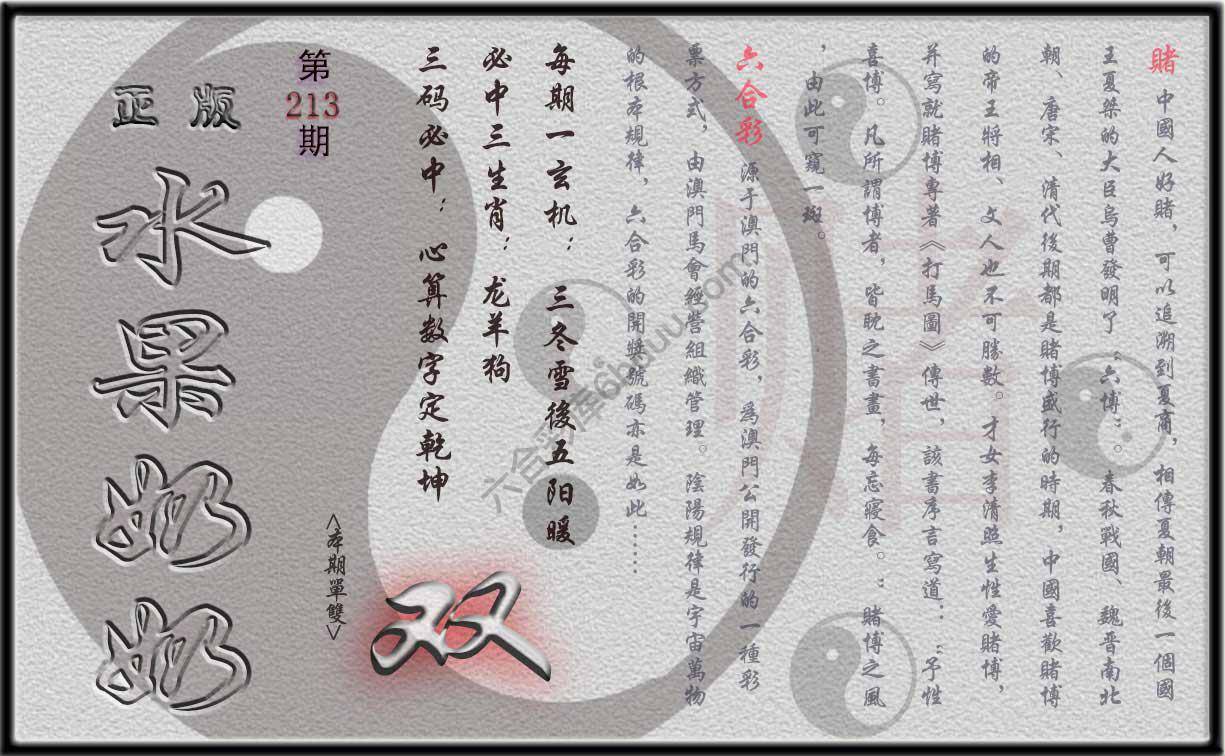 賭 中國人好賭，可以追溯到夏商，相傳夏朝最後一個國
王夏桀的大臣烏曹發明了“六博”。春秋戰國、魏晋南北
朝、唐宋、清代後期都是賭博盛行的時期，中國喜歡賭博
的帝王將相、文人也不可勝數。才女李清照生性愛賭博，
并寫就賭博專著《打馬圖》傳世，該書序言寫道：“予性
喜博。凡所謂博者，皆眈之書畫，每忘寢食。”賭博之風
，由此可窺一斑。
六合彩 源于澳門的六合彩，爲澳門公開發行的一種彩
票方式，由澳門馬會經營組織管理。陰陽規律是宇宙萬物
的根本規律，六合彩的開獎號碼亦是如此……
每期一玄机：三冬雪後五阳暖
必中三生肖：龙羊狗
三码必中：心算数字定乾坤
第
213
期
<本期單雙>
双
正版
水果奶奶
賭